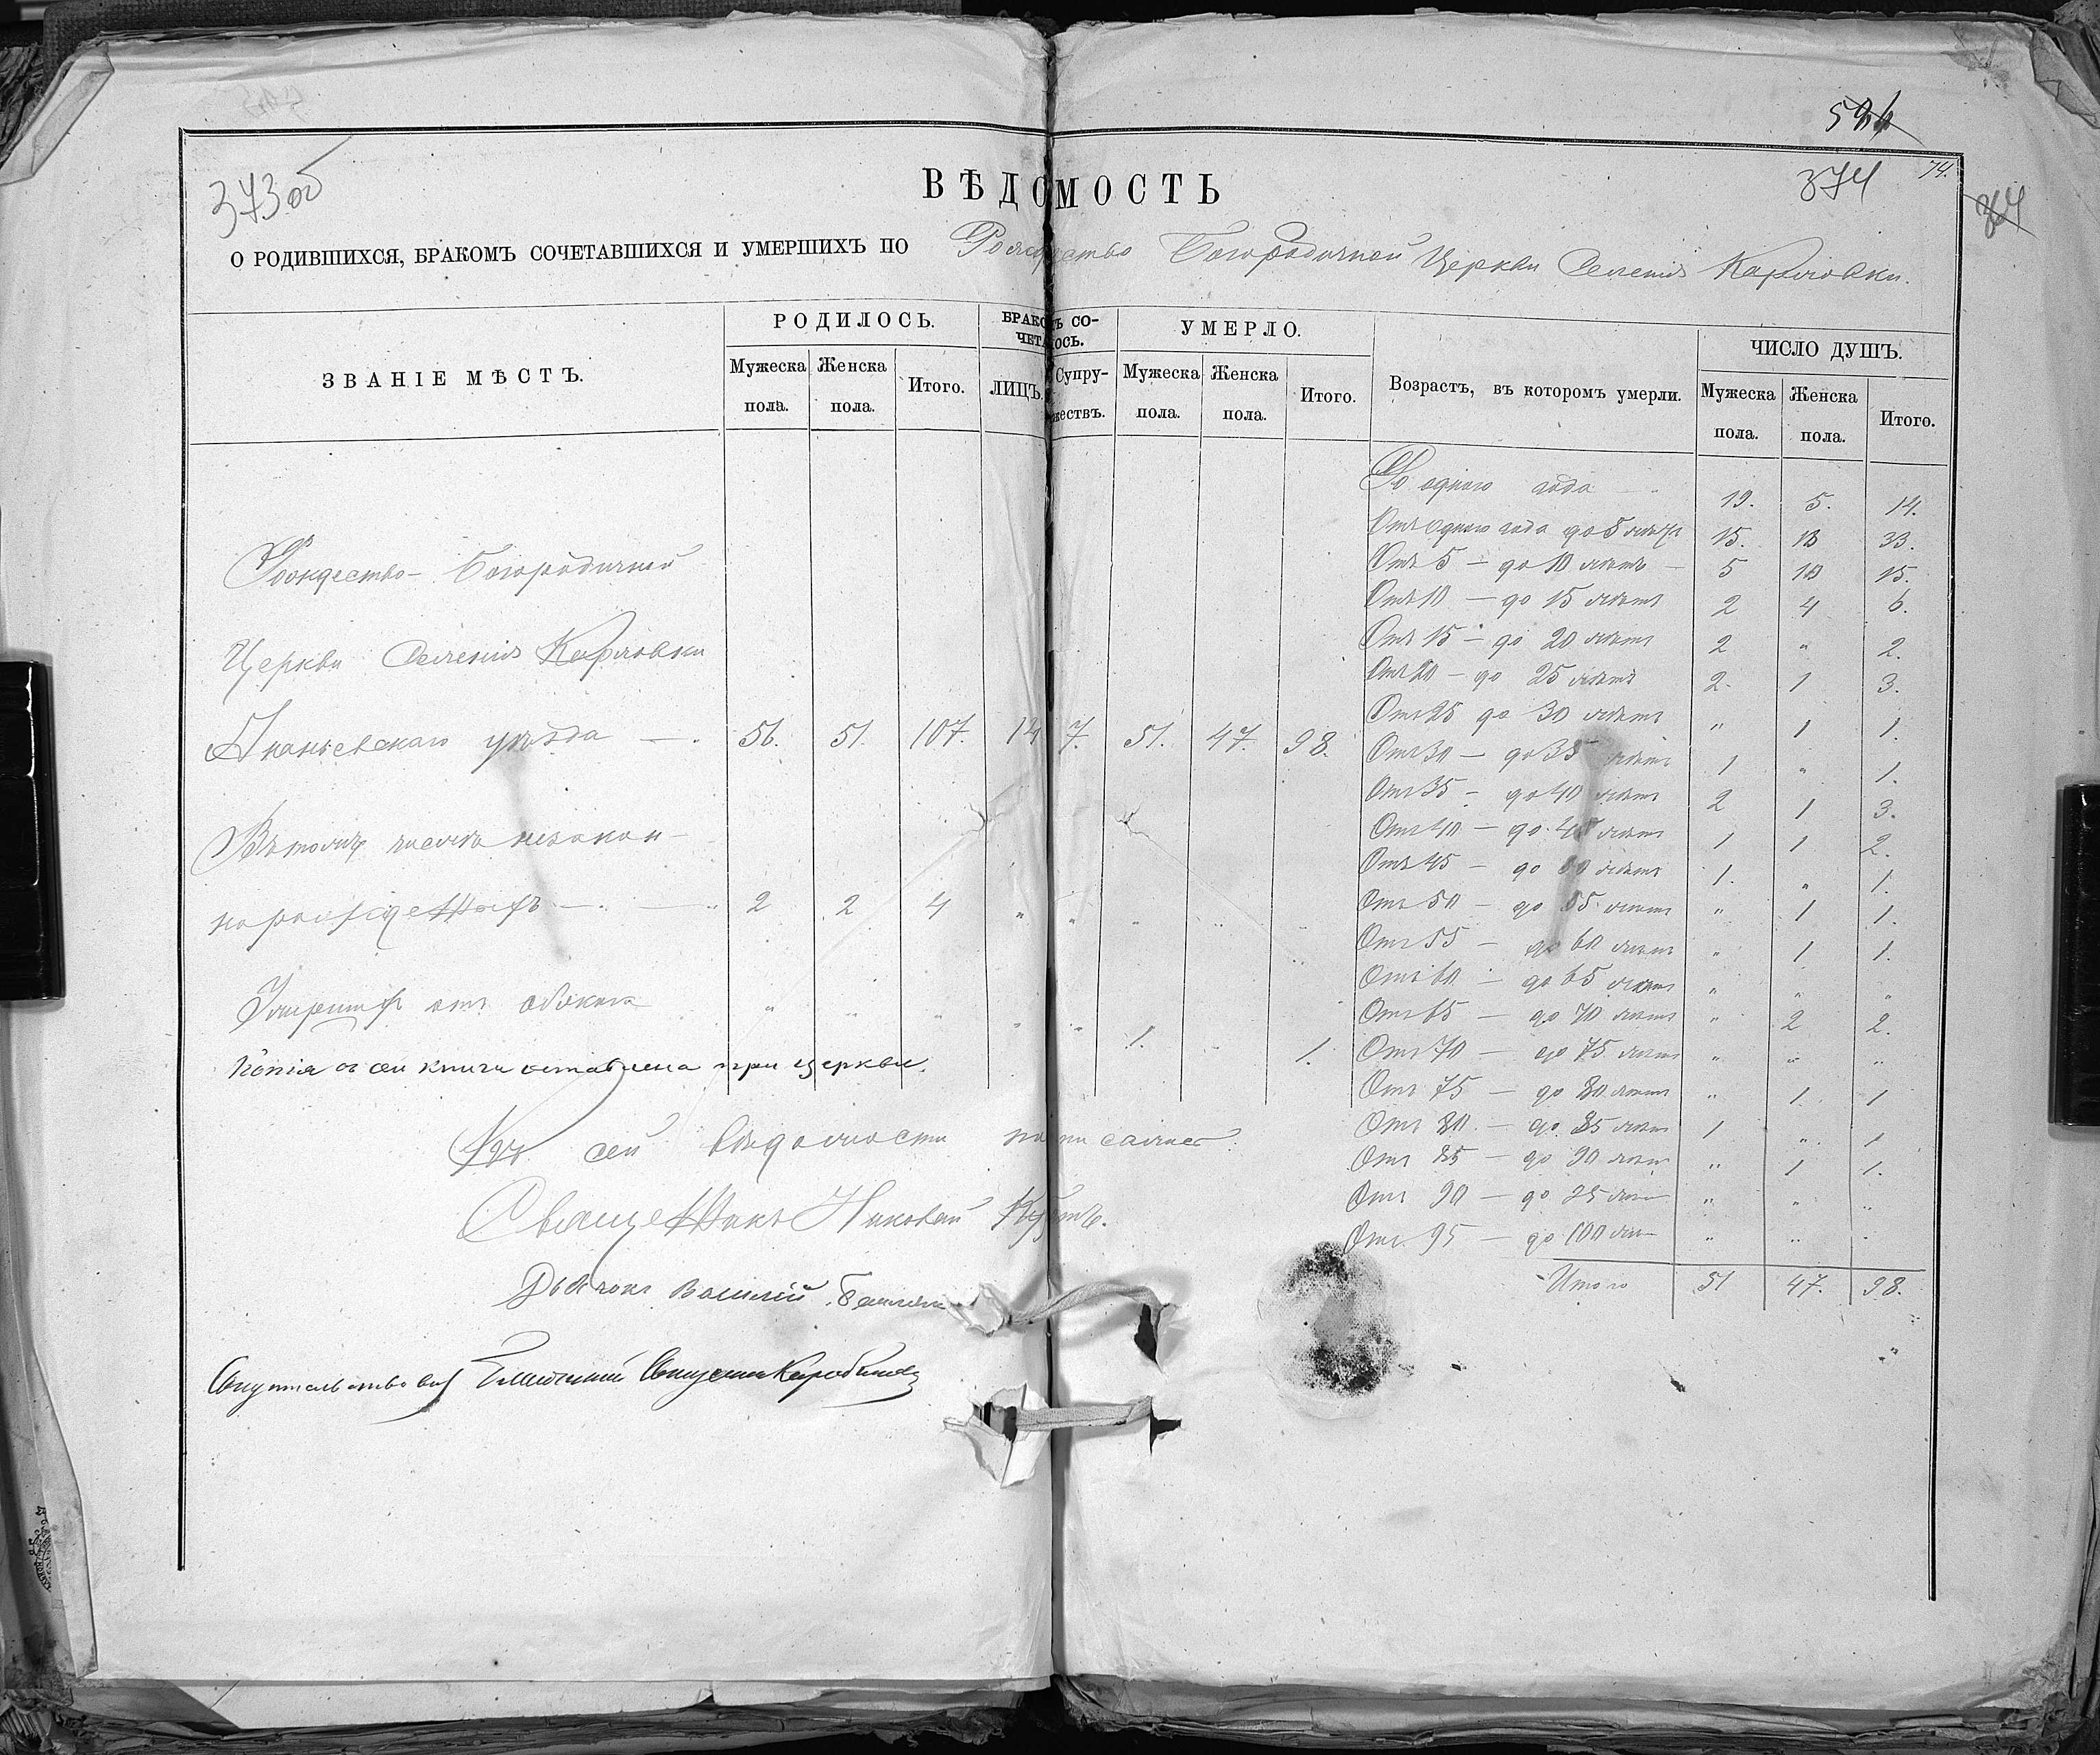 594
373 об
374
74.
ВѢДОМОСТЬ
О РОДИВШИХСЯ, БРАКОМЪ СОЧЕТАВШИХСЯ И УМЕРШИХЪ ПО Рождество Богородичной Церкви Селенія Карловки.
ЗВАНІЕ МѢСТЪ.
РОДИЛОСЬ.
Мужеска пола.
Женска пола.
Итого.
БРАКОМЪ СОЧЕТАЛОСЬ.
ЛИЦЪ.
Супружествъ.
УМЕРЛО.
Мужеска пола.
Женска пола.
Итого.
Возрастъ, въ которомъ умерли.
ЧИСЛО ДУШЪ.
Мужеска пола.
Женска пола.
Итого.
Рождество-Богородичной
Церкви Селенія Карловки
Ананьевскаго уѣзда — . 56. 51. 107. 14 7. 51. 47. 98.
Въ томъ числѣ незакон-
норожденныхъ — . — . 2 2 4 " " " " "
Умершихъ отъ " " " " " 1. " 1.
Копія съ сей книги оставлена при церкви.
Къ сей вѣдомости подписались:
Священникъ Николай
Дьячокъ Василій
До одного года — 19. 5. 14.
Отъ одного года до 5 лѣтъ 15. 18 33.
Отъ 5 — до 10 лѣтъ — 5 10 15.
Отъ 10 — до 15 лѣтъ 2 4 6.
Отъ 15 — до 20 лѣтъ 2 " 2.
Отъ 20 — до 25 лѣтъ 2. 1 3.
Отъ 25 до 30 лѣтъ " 1 1.
Отъ 30 — до 35 лѣтъ 1 " 1.
Отъ 35 — до 40 лѣтъ 2 1 3.
Отъ 40 — до 45 лѣтъ 1 1 2.
Отъ 45 — до 50 лѣтъ 1. " 1.
Отъ 50 — до 55 лѣтъ " 1 1.
Отъ 55 — до 60 лѣтъ " 1 1.
Отъ 60 — до 65 лѣтъ " " "
Отъ 65 — до 70 лѣтъ " 2 2.
Отъ 70 — до 75 лѣтъ " " "
Отъ 75 — до 80 лѣтъ " 1. 1
Отъ 80 — до 85 лѣтъ 1 " 1
Отъ 85 — до 90 лѣтъ " 1 1.
Отъ 90 — до 95 лѣтъ " " "
Отъ 95 — до 100 лѣтъ " " "
Итого 51 47. 98.